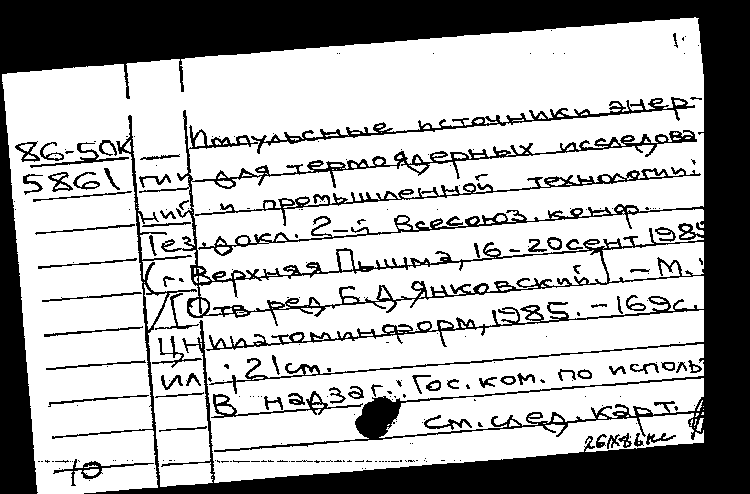 1.
Импульсные источники энер-
86-50к
5861
гии для термоядерных исследова-
ний и промышленной технологии:
Тез. докл. 2-й Всесоюз. конф.
(г. Верхняя Пышма, 16-20 сент. 1985
/[Отв. ред. Б.Д. Янковский]. - М.:
ЦНИИатоминформ, 1985. - 169с.
ил.; 21см.
В надзаг.: Гос. ком. по исполь
см. след. карт.
10